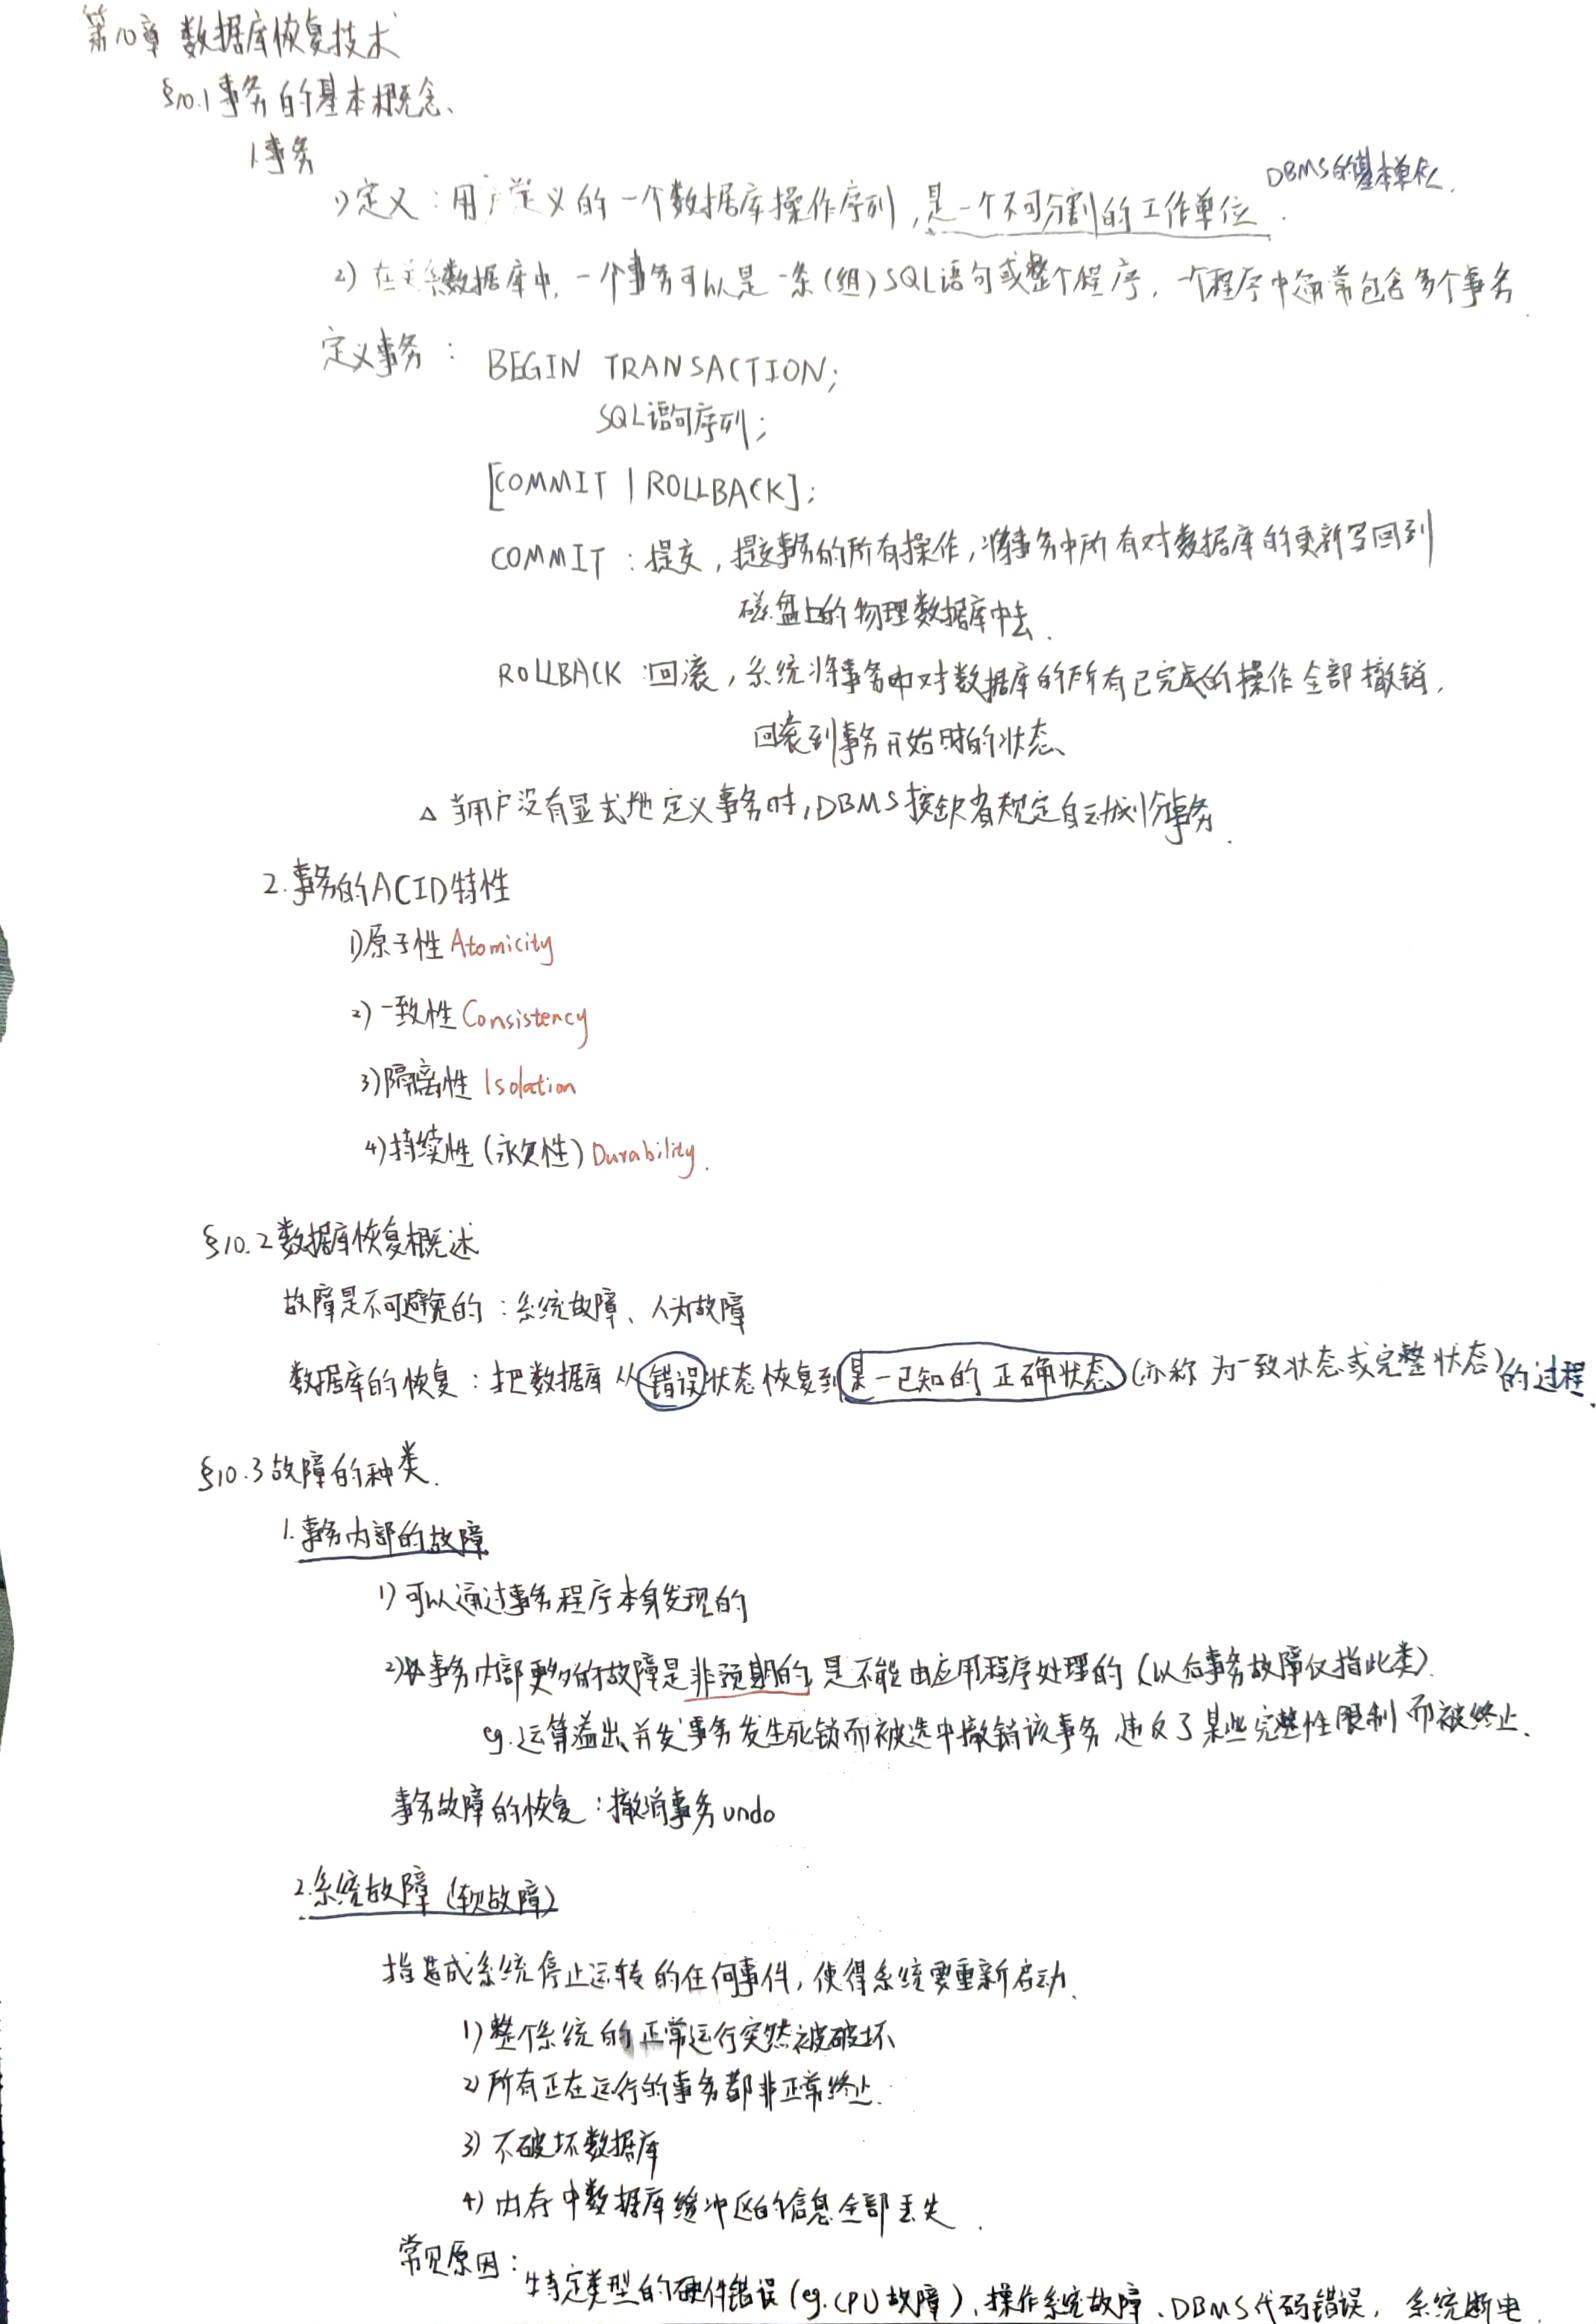 第10章 数据库恢复技术
§10.1 事务的基本概念、
1.事务
DBMS的基本单位.
1)定义：用户定义的一个数据库操作序列,是一个不可分割的工作单位.
2)在关系数据库中,一个事务可以是一条(组)SQL语句或整个程序,一个程序中通常包含多个事务.
定义事务： BEGIN TRANSACTION;
SQL语句序列;
[COMMIT | ROLLBACK];
COMMIT：提交,提交事务的所有操作,将事务中所有对数据库的更新写回到
磁盘上的物理数据库中去.
ROLLBACK：回滚,系统将事务中对数据库的所有已完成的操作全部撤销,
回滚到事务开始时的状态、
△ 当用户没有显式地定义事务时,DBMS按缺省规定自动划分事务.
2.事务的ACID特性
1)原子性 Atomicity
2)一致性 Consistency
3)隔离性 Isolation
4)持续性(永久性) Durability.
§10.2 数据库恢复概述
故障是不可避免的：系统故障、人为故障
数据库的恢复：把数据库从错误状态恢复到某一已知的正确状态(亦称为一致状态或完整状态)的过程.
§10.3 故障的种类.
1.事务内部的故障
1)可以通过事务程序本身发现的
2)事务内部更多的故障是非预期的,是不能由应用程序处理的(以后事务故障仅指此类).
eg.运算溢出、并发事务发生死锁而被选中撤销该事务、违反了某些完整性限制而被终止.
事务故障的恢复：撤消事务undo
2.系统故障(软故障)
指造成系统停止运转的任何事件,使得系统要重新启动.
1)整个系统的正常运行突然被破坏
2)所有正在运行的事务都非正常终止.
3)不破坏数据库
4)内存中数据库缓冲区的信息全部丢失.
常见原因：
特定类型的硬件错误(eg.CPU故障)、操作系统故障、DBMS代码错误,系统断电.